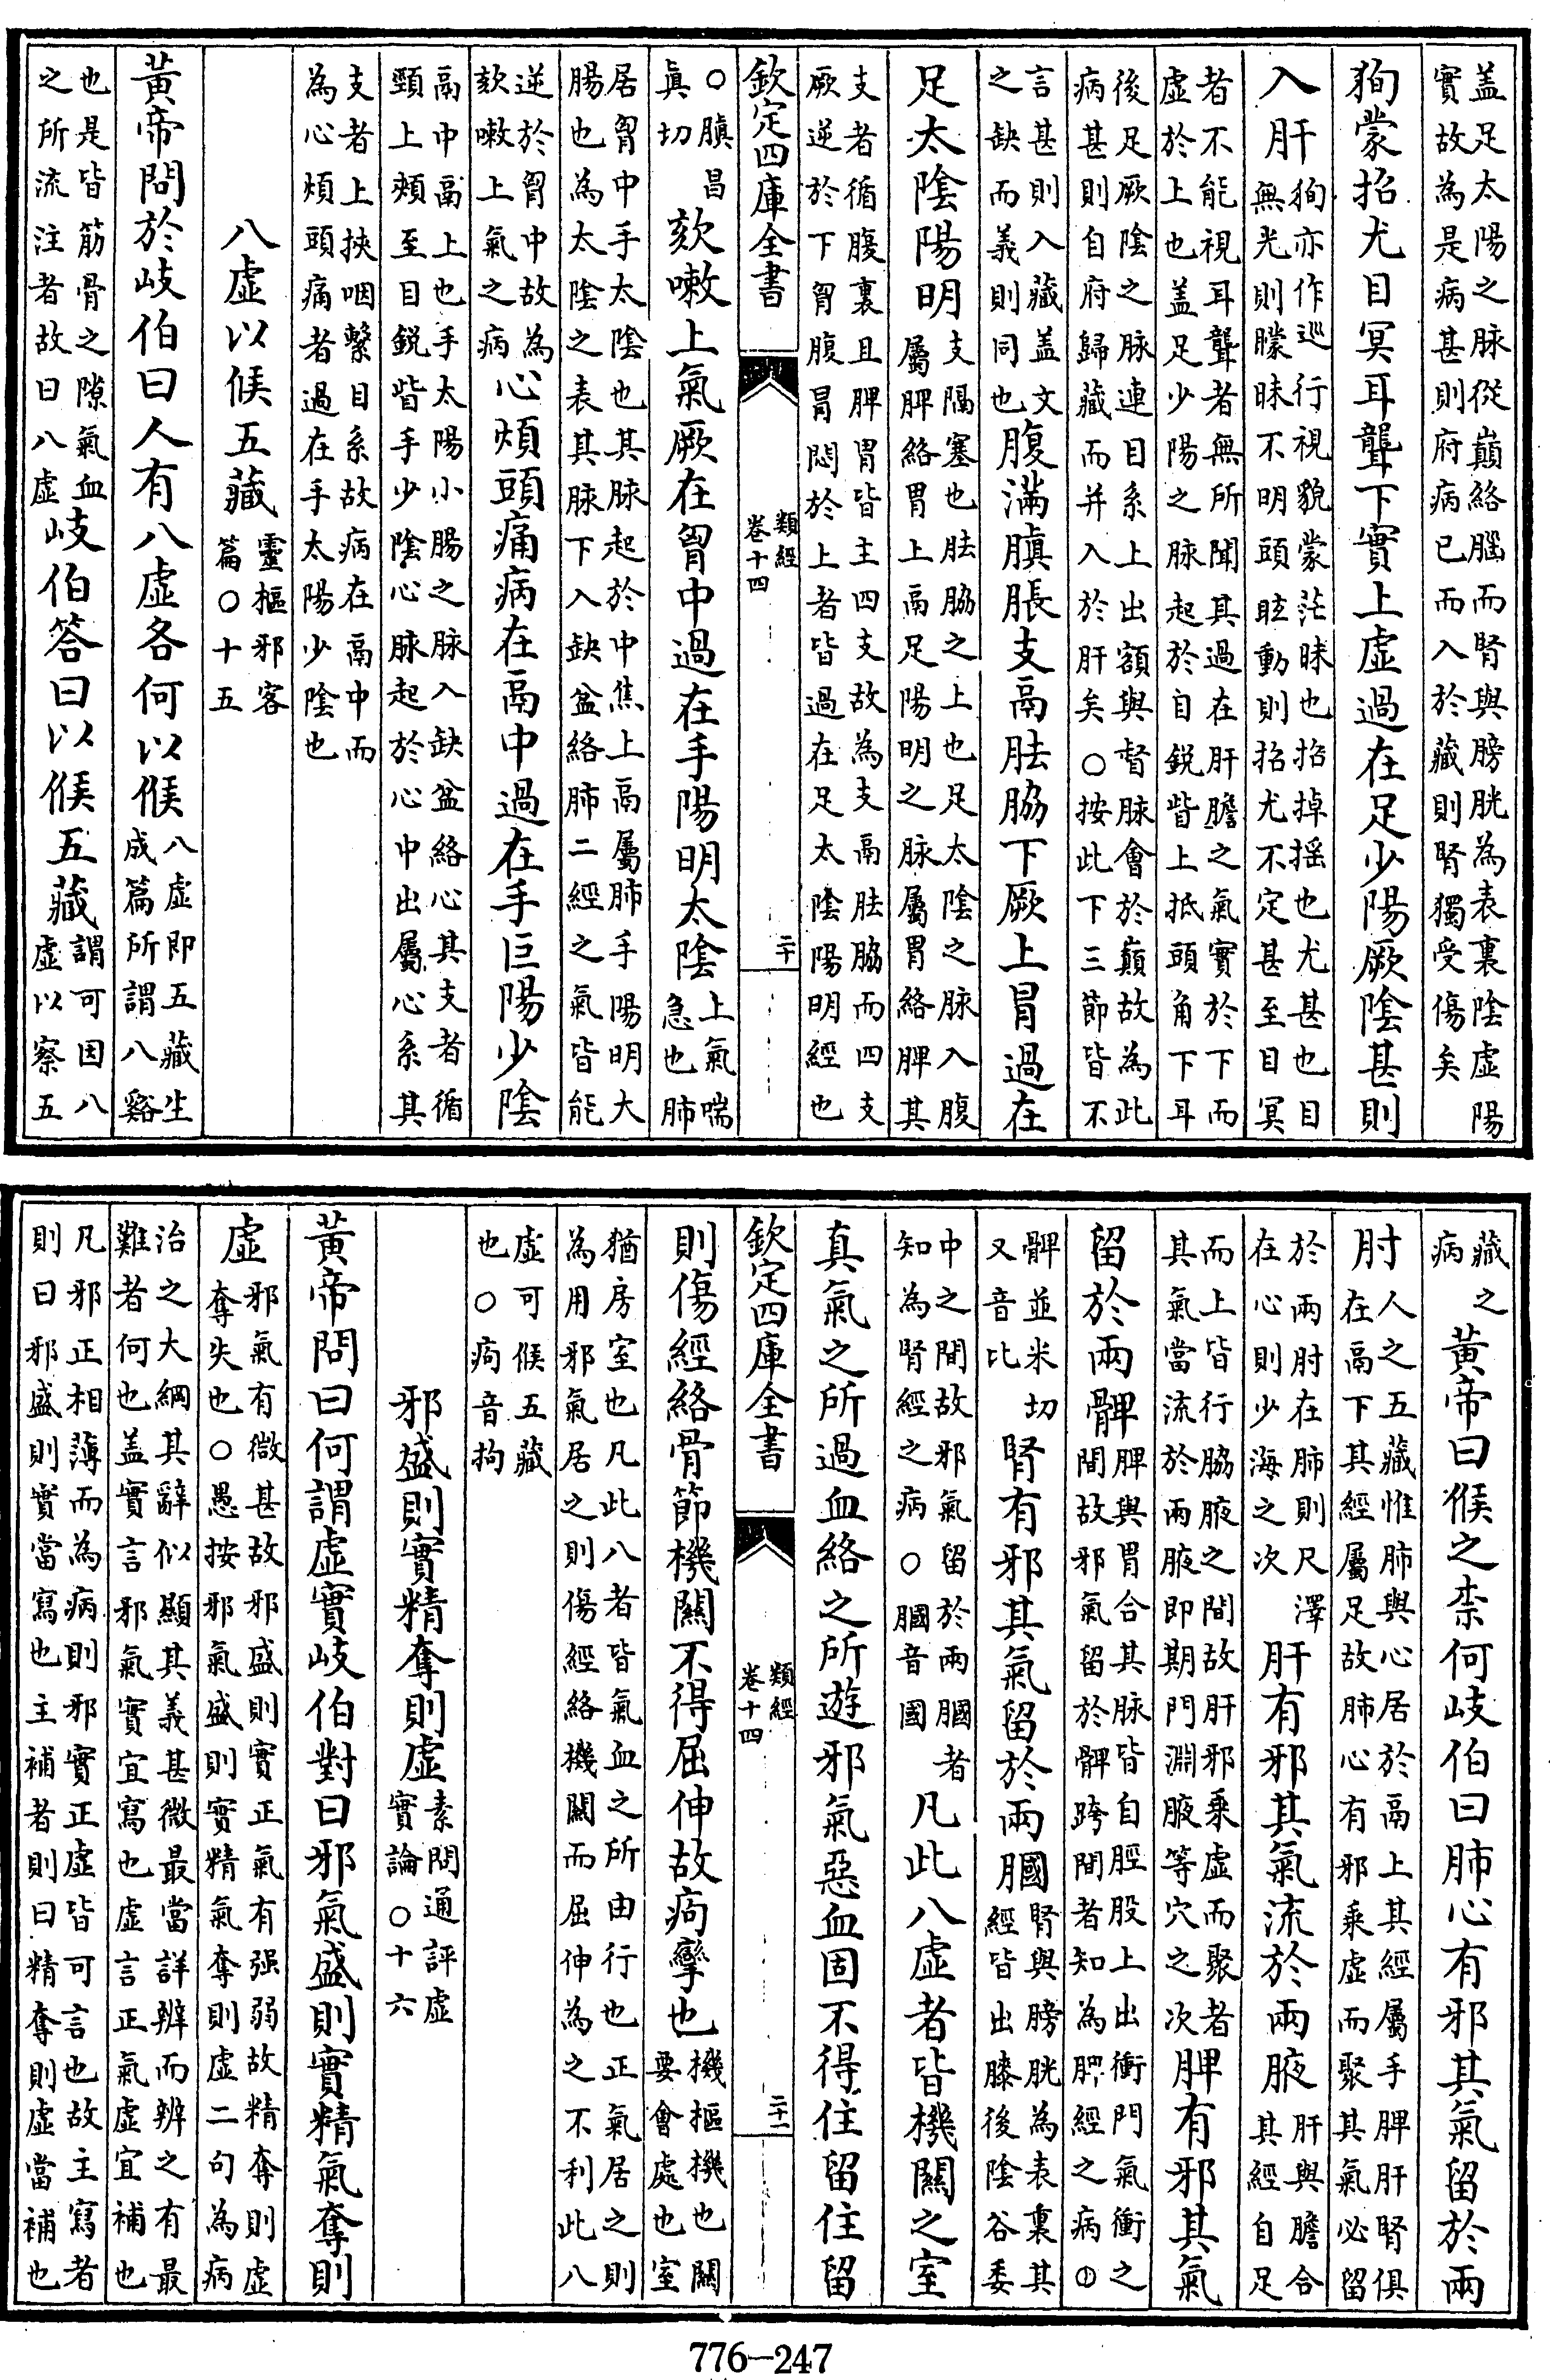 盖足太陽之脉從巔絡腦而腎與膀胱為表裏隂虛陽
實故為是病甚則府病已而入於藏則腎獨受傷矣
狥蒙招尤目冥耳聾下實上虛過在足少陽厥隂甚則
入肝狥亦作巡行視貌蒙茫昧也招掉摇也尤甚也目
無光則矇昧不明頭眩動則招尤不定甚至目冥
者不能視耳聾者無所聞其過在肝膽之氣實於下而
虛於上也盖足少陽之脉起於自銳眥上抵頭角下耳
後足厥隂之脉連目系上出額與督脉會於巔故為此
病甚則自府歸藏而并入於肝矣○按此下三節皆不
言甚則入藏盖文
之缺而義則同也腹滿䐜脹支鬲胠脇下厥上冒過在
足太隂陽明支隔塞也胠脇之上也足太隂之脉入腹
屬脾絡胃上鬲足陽明之脉屬胃絡脾其
支者循腹裏且脾胃皆主四支故為支鬲胠脇而四支
厥逆於下胷腹冒悶於上者皆過在足太隂陽明經也
欽定四庫全書
類經
卷十四
二十
○䐜昌
真切欬嗽上氣厥在胷中過在手陽明太隂上氣喘
急也肺
居胷中手太隂也其脉起於中焦上鬲屬肺手陽明大
腸也為太隂之表其脉下入缺盆絡肺二經之氣皆能
逆於胷中故為
欬嗽上氣之病心煩頭痛病在鬲中過在手巨陽少隂
鬲中鬲上也手太陽小腸之脉入缺盆絡心其支者循
頸上頰至目銳眥手少隂心脉起於心中出屬心系其
支者上挾咽繫目系故病在鬲中而
為心煩頭痛者過在手太陽少隂也
八虛以候五藏靈樞邪客
篇○十五
黃帝問於岐伯曰人有八虛各何以候八虛即五藏生
成篇所謂八谿
也是皆筋骨之隙氣血
之所流注者故曰八虛岐伯答曰以候五藏謂可因八
虛以察五
藏之
病黃帝曰候之柰何岐伯曰肺心有邪其氣留於兩
肘人之五藏惟肺與心居於鬲上其經屬手脾肝腎俱
在鬲下其經屬足故肺心有邪乘虛而聚其氣必留
於兩肘在肺則尺澤
在心則少海之次肝有邪其氣流於兩腋肝與膽合
其經自足
而上皆行脇腋之間故肝邪乘虛而聚者
其氣當流於兩腋即期門淵腋等穴之次脾有邪其氣
留於兩髀脾與胃合其脉皆自脛股上出衝門氣衝之
間故邪氣留於髀跨間者知為脾經之病○
髀並米切
又音比腎有邪其氣留於兩膕腎與膀胱為表裏其
經皆出膝後隂谷委
中之間故邪氣留於兩膕者
知為腎經之病○膕音國凡此八虛者皆機關之室
真氣之所過血絡之所遊邪氣惡血固不得住留住留
欽定四庫全書
類經
卷十四
二十一
則傷經絡骨節機關不得屈伸故痀攣也機樞機也關
要會處也室
猶房室也凡此八者皆氣血之所由行也正氣居之則
為用邪氣居之則傷經絡機關而屈伸為之不利此八
虛可候五藏
也○痀音拘
邪盛則實精奪則虛素問通評虛
實論○十六
黃帝問曰何謂虛實岐伯對曰邪氣盛則實精氣奪則
虛邪氣有微甚故邪盛則實正氣有强弱故精奪則虛
奪失也○愚按邪氣盛則實精氣奪則虛二句為病
治之大綱其辭似顯其義甚微最當詳辨而辨之有最
難者何也盖實言邪氣實宜寫也虛言正氣虛宜補也
凡邪正相薄而為病則邪實正虛皆可言也故主寫者
則曰邪盛則實當寫也主補者則曰精奪則虛當補也
776-247